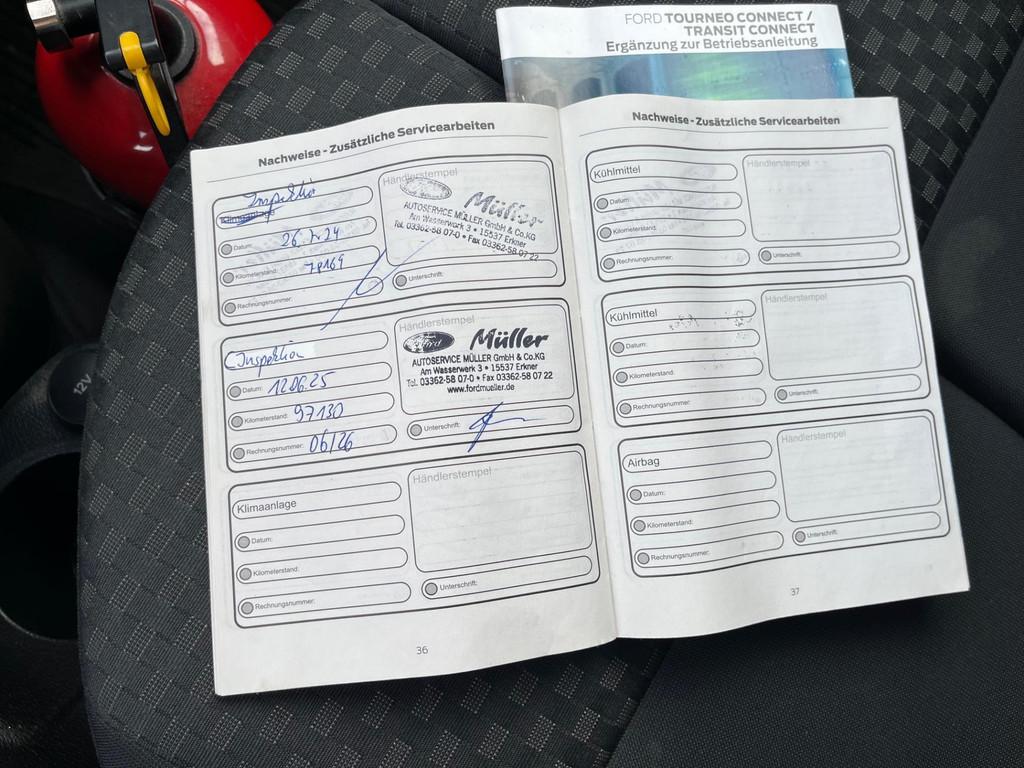 FORD TOURNEO CONNECT /
TRANSIT CONNECT
Ergänzung zur Betriebsanleitung
Nachweise - Zusätzliche Servicearbeiten
Inspektion
Klimaanlage
Datum: 26.7.24
Kilometerstand: 78169
Rechnungsnummer:
Händlerstempel
Ford
Müller
AUTOSERVICE MÜLLER GmbH & Co.KG
Am Wasserwerk 3 • 15537 Erkner
Tel. 03362-58 07-0 • Fax 03362-58 07 22
Unterschrift:
Inspektion
Datum: 12.06.25
Kilometerstand: 97130
Rechnungsnummer: 06/26
Händlerstempel
Ford
Müller
AUTOSERVICE MÜLLER GmbH & Co.KG
Am Wasserwerk 3 • 15537 Erkner
Tel. 03362-58 07-0 • Fax 03362-58 07 22
www.fordmueller.de
Unterschrift:
Klimaanlage
Datum:
Kilometerstand:
Rechnungsnummer:
Händlerstempel
Unterschrift:
36
Nachweise - Zusätzliche Servicearbeiten
Kühlmittel
Datum:
Kilometerstand:
Rechnungsnummer:
Händlerstempel
Unterschrift:
Kühlmittel
Datum:
Kilometerstand:
Rechnungsnummer:
Händlerstempel
Unterschrift:
Airbag
Datum:
Kilometerstand:
Rechnungsnummer:
Händlerstempel
Unterschrift:
37
12V